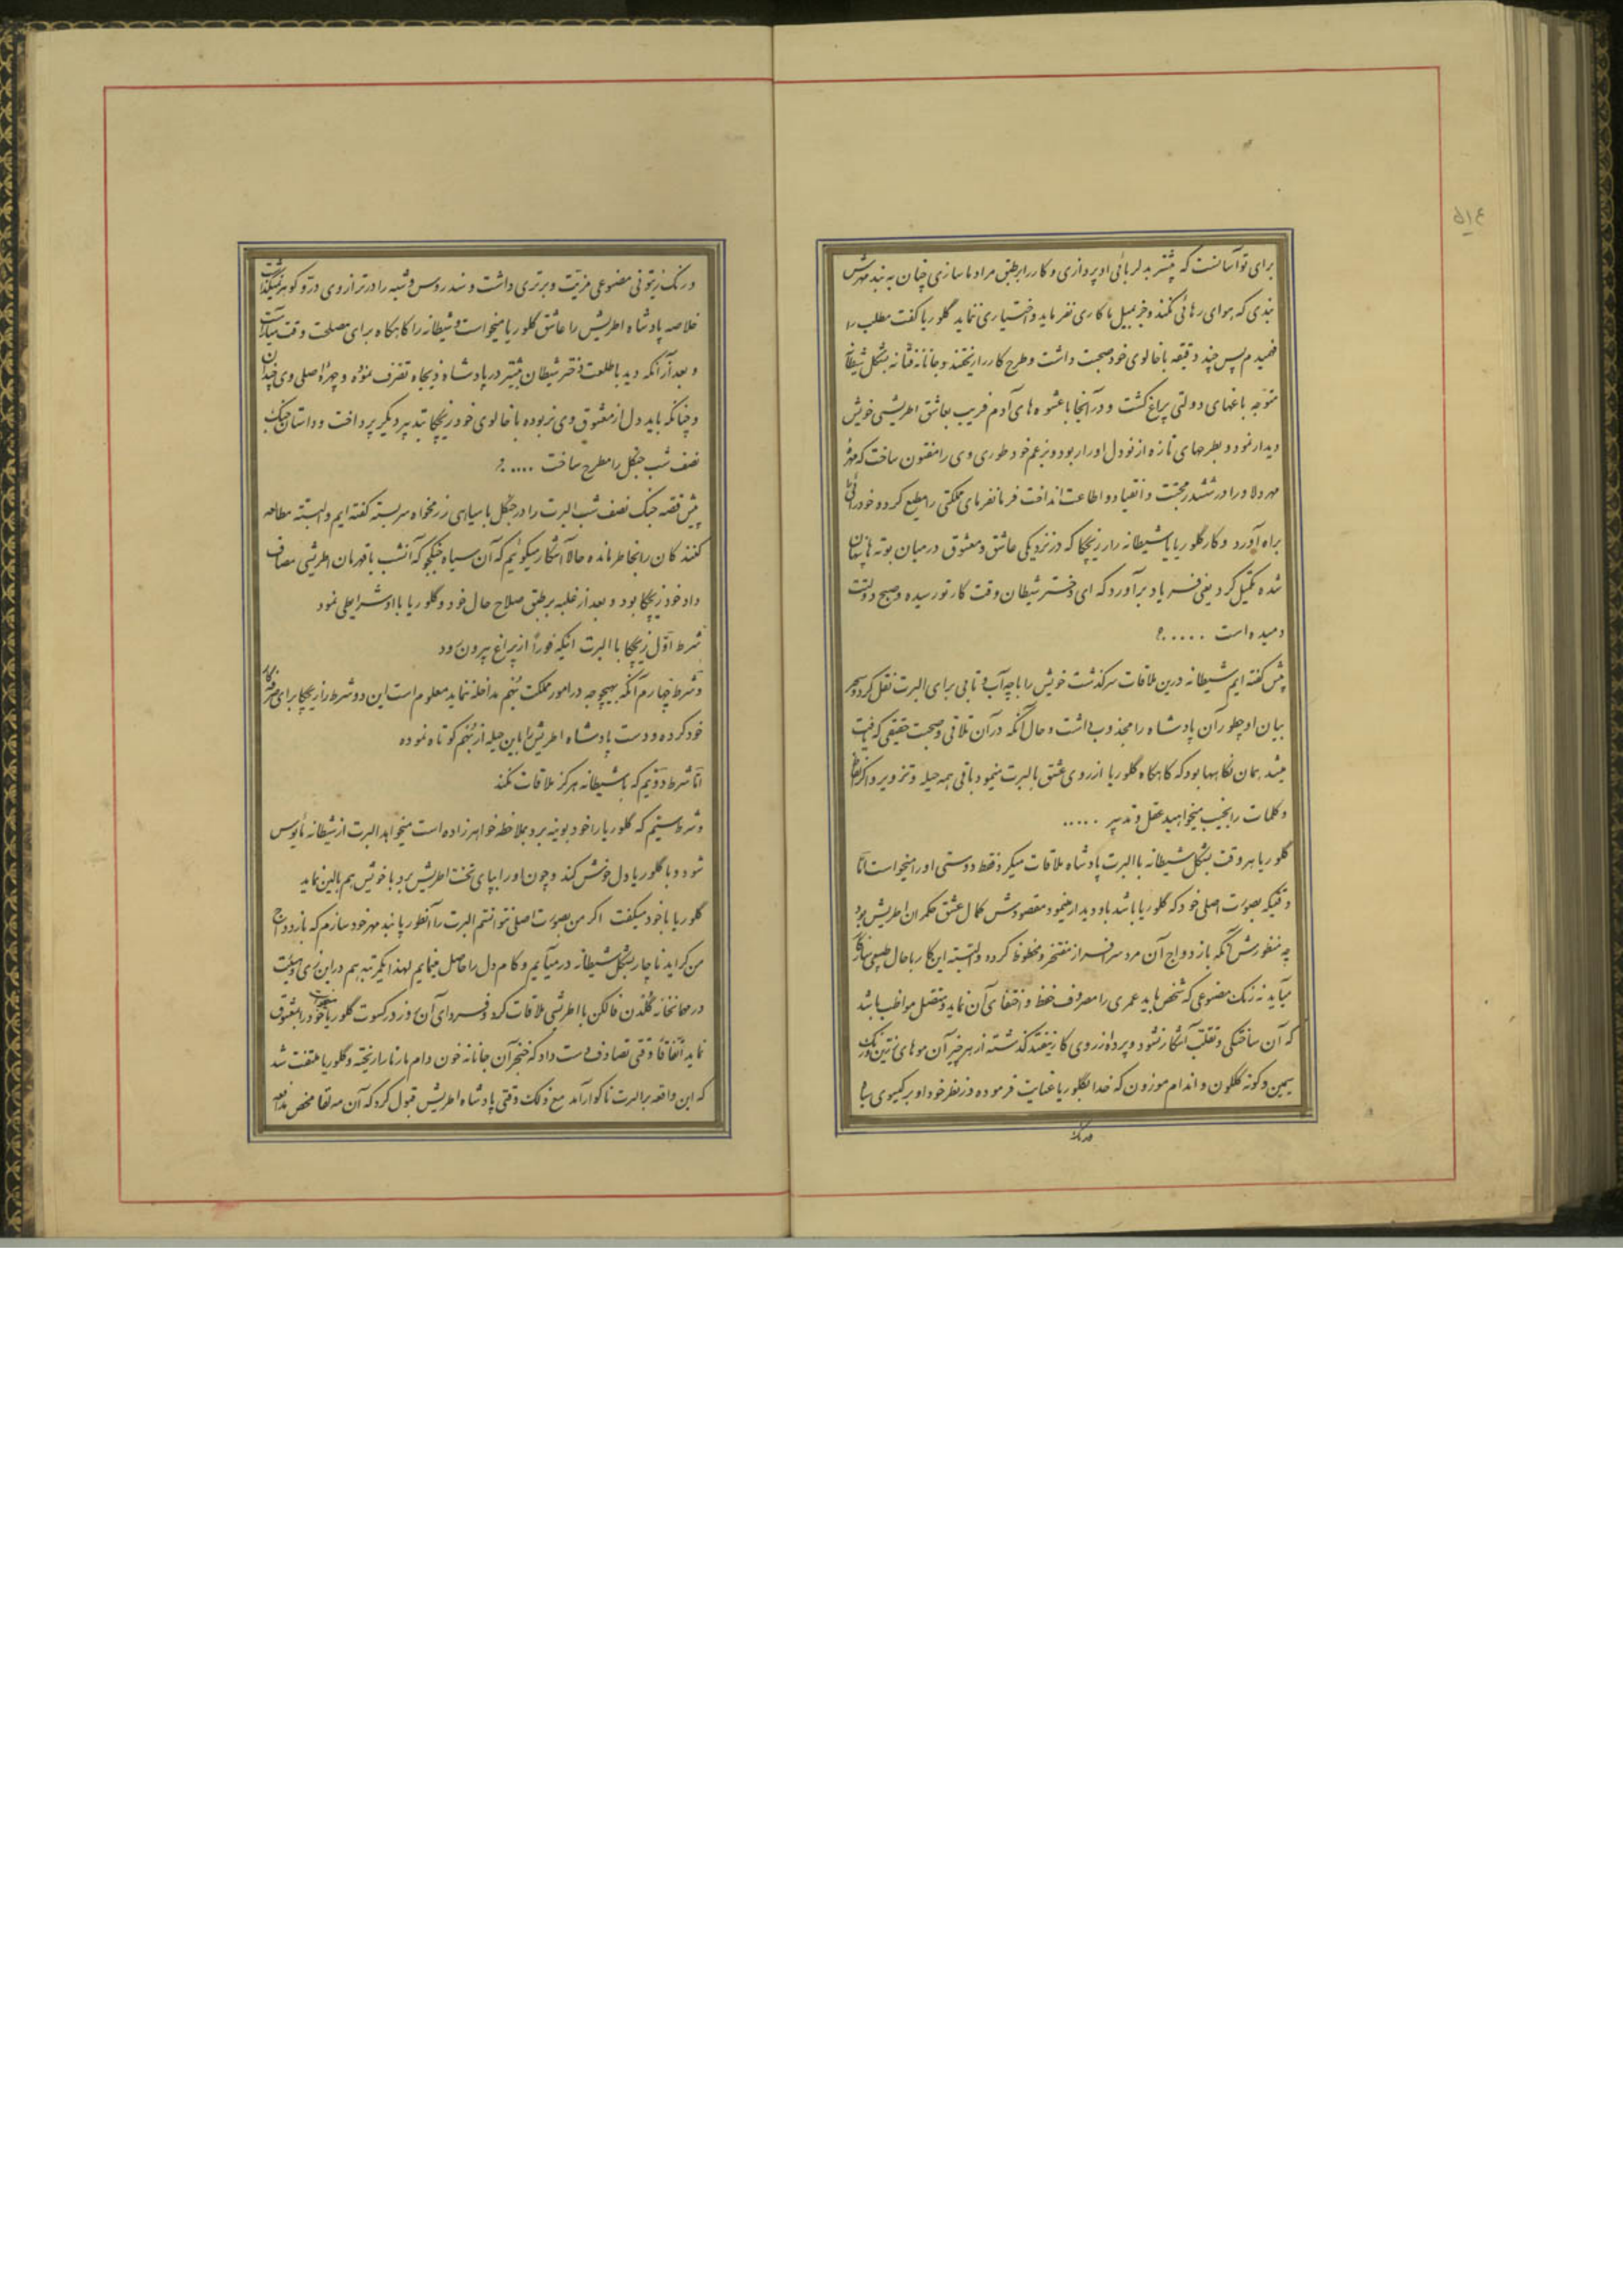 ۵۱۴
برای تو آسانست که بیشتر بدلربائی او پردازی و کار را بر طبق مراد ما سازی چنان به بند مهرش
بندی که هوای رهائی نکند و جز بمیل ما کاری نفرماید و اختیاری ننماید گلوریا گفت مطلب را
فهمیدم پس چند دقیقه با خالوی خود صحبت داشت و طرح کار را ریختند و جانانه فتانه بشکل شیطانه
متوجه باغهای دولتی پراغ گشت و در آنجا با عشوه های آدم فریب بعاشق اطریشی خویش
دیدار نمود و بطرحهای تازه از نو دل او را ربود و بزعم خود طوری وی را مفتون ساخت که مهرهٔ
مهر دلاور را در ششدر محبت و انقیاد و اطاعت انداخت فرمانفرمای مملکتی را مطیع کرد و خودرائی
براه آورد و کار گلوریا یا شیطانه را ریچکا که در نزدیکی عاشق و معشوق در میان بوته ها پنهان
شده تکمیل کرد یعنی فریاد برآورد که ای دختر شیطان وقت کار تو رسیده و صبح دولتت
دمیده است ..... ؟
پیش گفته ایم شیطانه درین ملاقات سرگذشت خویش را با چه آب و تابی برای البرت نقل کرد و سحر
بیان او چطور آن پادشاه را مجذوب داشت و حال آنکه در آن تلاقی و صحبت حقیقی که یافت
میشد همان نگاهها بود که گاهگاه گلوریا از روی عشق بالبرت مینمود باقی همه حیله و تزویر و اگر الفاظ
و کلمات را بجیب میخواهید عقل و تدبیر .....
گلوریا هر وقت بشکل شیطانه با البرت پادشاه ملاقات میکرد فقط دوستی او را میخواست امّا
وقتیکه بصورت اصلی خود که گلوریا باشد باو دیدار مینمود مقصودش کمال عشق حکمران اطریش بود
چه منظورش آنکه بازدواج آن مرد سرافراز مفتخر و محظوظ گردد و البته این کار با حال طبیعی سازگار
میآید نه رنگ مصنوعی که شخص باید عمری را مصروف حفظ و اختفای آن نماید و متصل مواظب باشد
که آن ساختگی و تقلب آشکار نشود و پرده از روی کار نیفتد گذشته از هر چیز آن موهای زرین و رنگ
سیمین و گونه گلگون و اندام موزون که خدا بگلوریا عنایت فرموده در نظر خود او بر گیسوی سیاه
و رنگ
و رنگ زیتونی مصنوعی مزیت و برتری داشت و سندروس و شبه را در ترازوی در و گوهر نمیگذاشت
خلاصه پادشاه اطریش را عاشق گلوریا میخواست و شیطانه را گاهگاه برای مصلحت وقت میآراست
و بعد از آنکه دید با طلعت دختر شیطان بیشتر در پادشاه ذیجاه تصرف نموده و چهرهٔ اصلی وی چندان
و چنانکه باید دل از معشوق وی نربوده با خالوی خود ریچکا بتدبیر دیگر پرداخت و داستان جنگ
نصف شب جنگل را مطرح ساخت .... ؟
پیش قصه جنگ نصف شب البرت را در جنگل با سپاهی زرنخواه سربسته گفته ایم و البته مطالعه
کنندگان را بخاطر مانده حالا آشکار میگوئیم که آن سیاه جنگجو که آنشب با قهرمان اطریشی مصاف
داد خود ریچکا بود و بعد از غلبه بر طبق صلاح حال خود و گلوریا با او شرایطی نمود
شرط اوّل ریچکا با البرت اینکه فوراً از پراغ بیرون رود
و شرط چهارم آنکه بهیچوجه در امور مملکت بُنهم مداخله ننماید معلوم است این دو شرط را ریچکا برای صرفه کار
خود کرده و دست پادشاه اطریش را باین حیله از بُنهم کوتاه نموده
امّا شرط دویم که با شیطانه هرگز ملاقات نکند
و شرط سیّم که گلوریا را خود بوینه برد بملاحظه خواهرزاده است میخواهد البرت از شیطانه مأیوس
شود و با گلوریا دل خوش کند و چون او را بپای تخت اطریش برد با خویش هم بالین نماید
گلوریا با خود میگفت اگر من بصورت اصلی نتوانستم البرت را آنطور پابند مهر خود سازم که بازدواج
من گراید ناچار بشکل شیطانه در میآیم و کام دل را حاصل مینمایم لهذا یکمرتبه هم در این زی و هیئت
در مهمانخانهٔ گلدن فالکن با اطریشی ملاقات کرد و فردای آن روز در کسوت گلوریا خود را بمعشوق
نماید اتفاقاً وقتی تصادف دست داد که خنجر آن جانانه خون دام مارتا را ریخته و گلوریا ملتفت شد
که این واقعه بر البرت ناگوار آمد مع ذلک وقتی پادشاه اطریش قبول کرد که آن مه لقا محض مدافعه